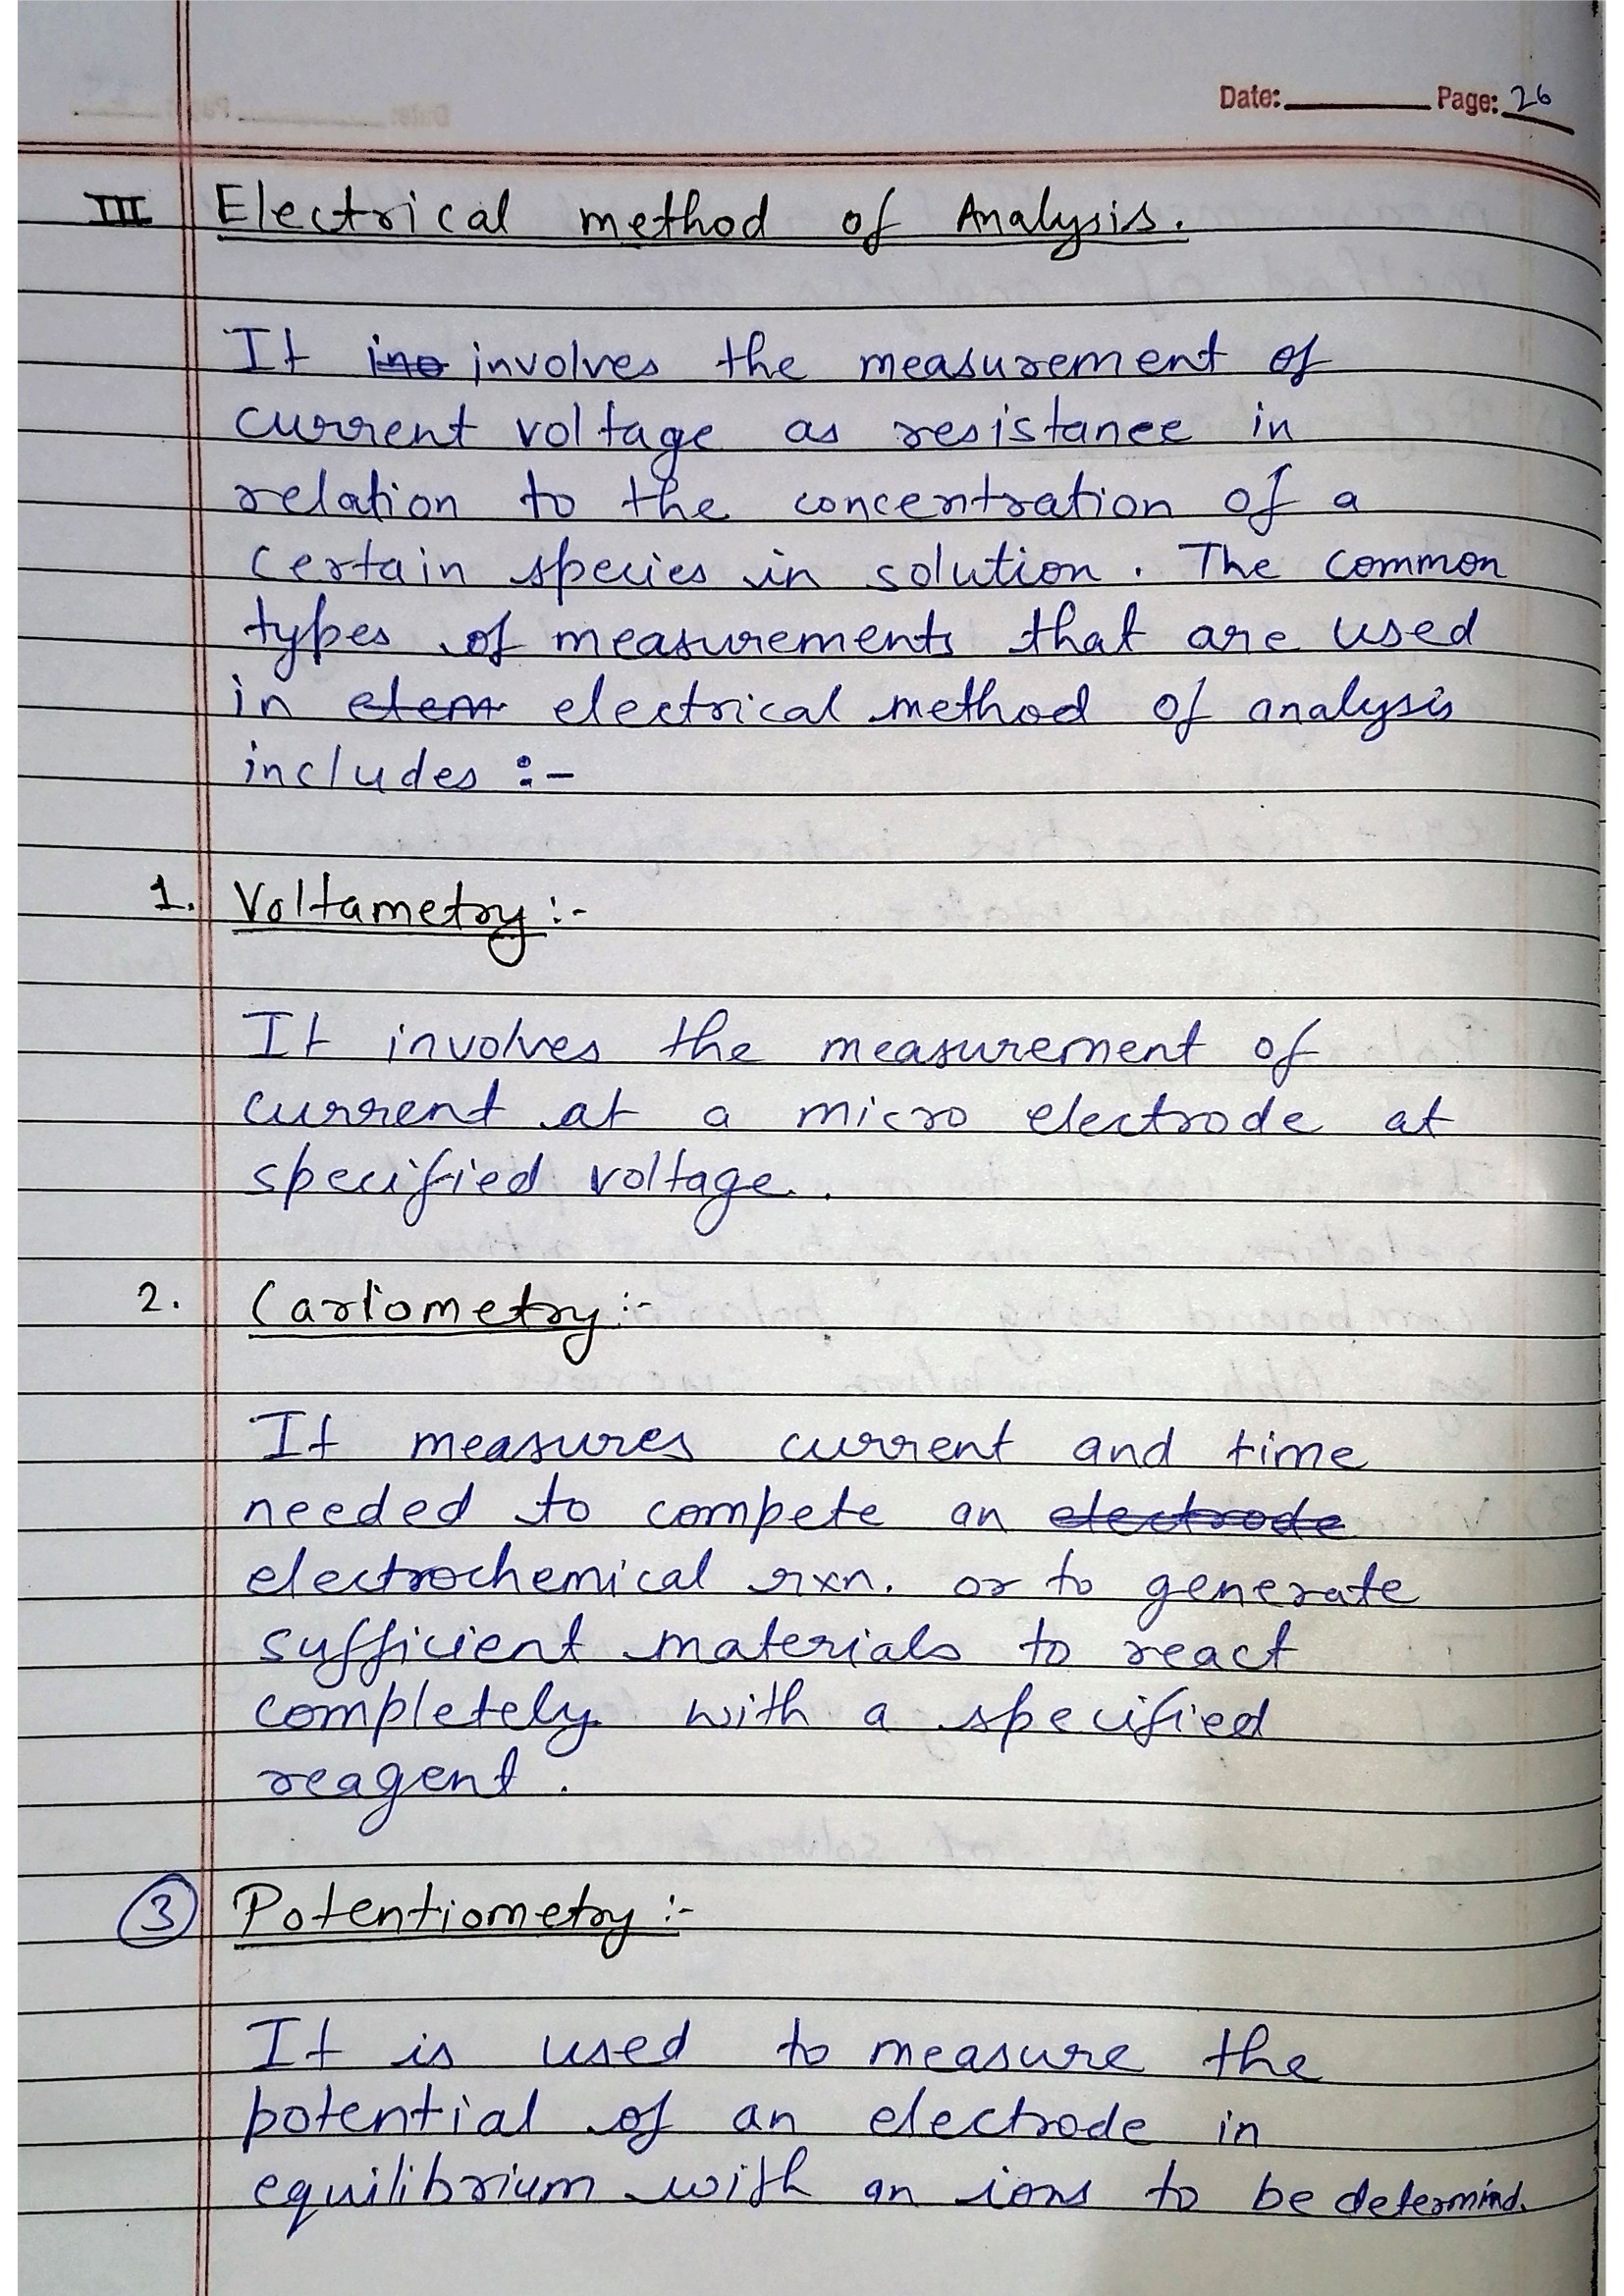 Date: Page: 26
III Electrical method of Analysis.
It ino involves the measurement of
current voltage as resistance in
relation to the concentration of a
certain species in solution. The common
types of measurements that are used
in elem electrical method of analysis
includes :-
1. Voltametry :-
It involves the measurement of
current at a micro electrode at
specified voltage.
2. Cariometry :-
It measures current and time
needed to compete an electrode
electrochemical rxn. or to generate
sufficient materials to react
completely with a specified
reagent.
3 Potentiometry :-
It is used to measure the
potential of an electrode in
equilibrium with an ions to be determind.